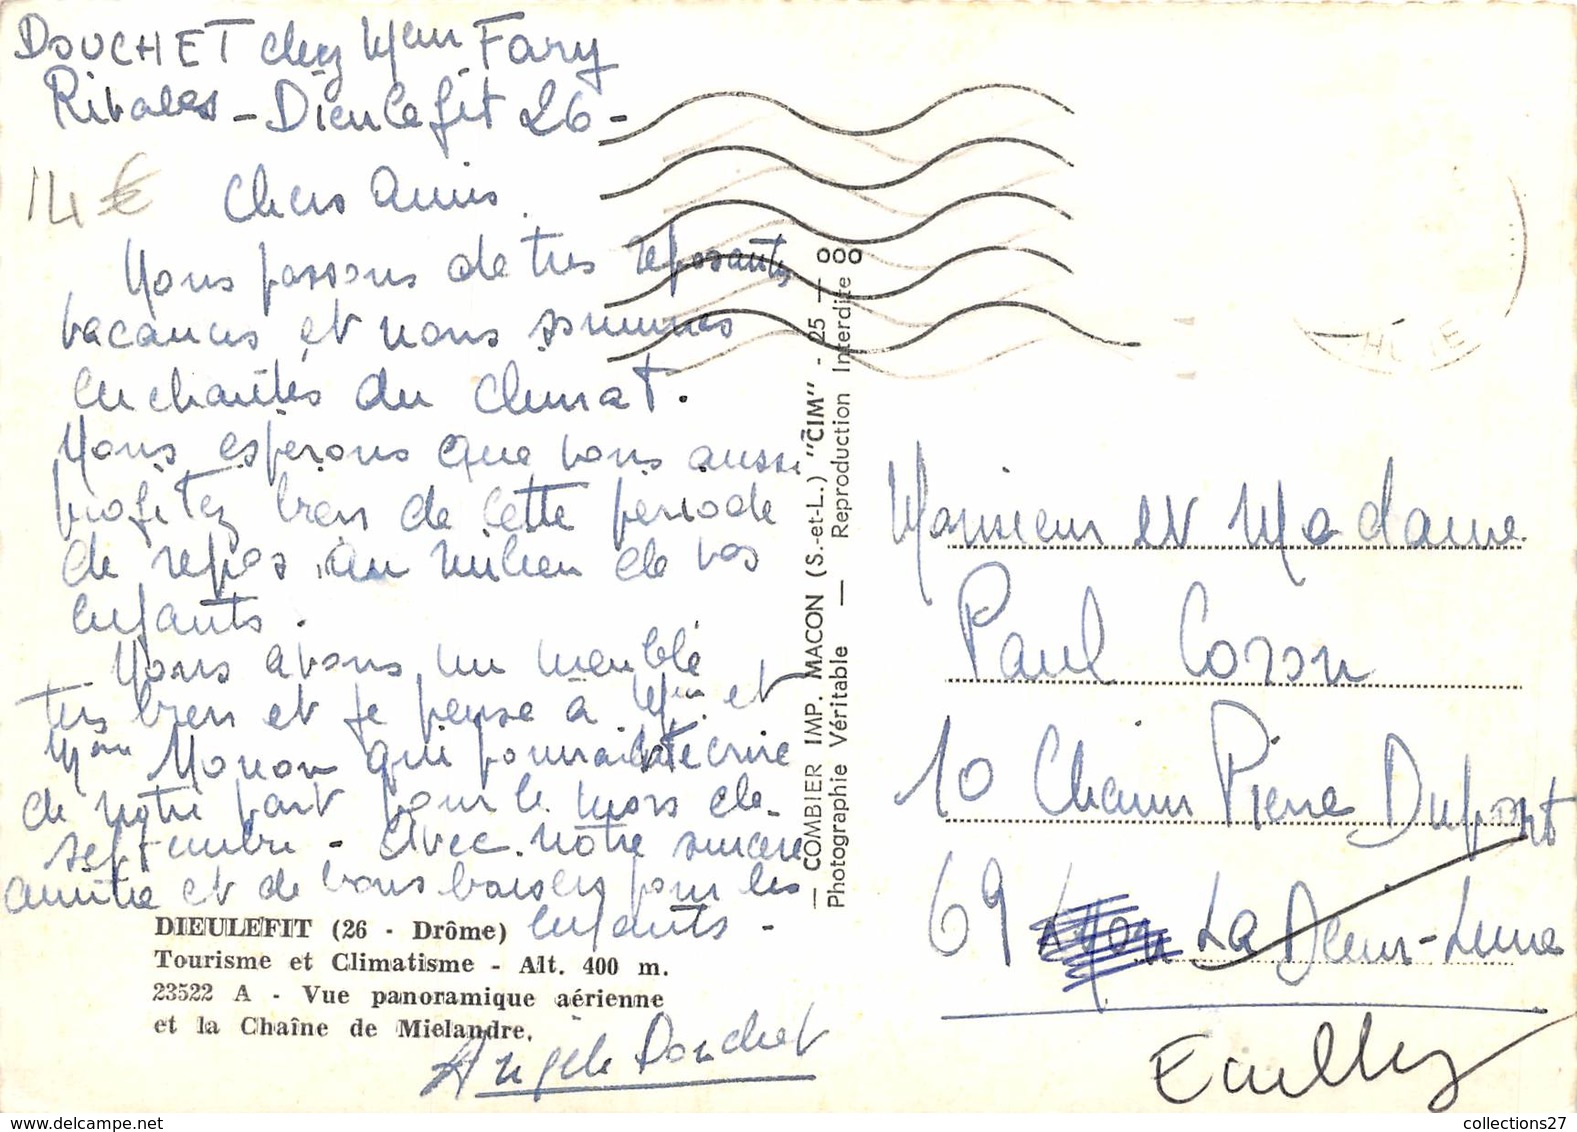 DOUCHET chez Mem Fary
Rivales - Dieulefit 26 -
14 €
Chers Amis
Nous passons de tres reposantes
vacances et nous sommes
enchantés du climat.
Nous esperons que vous aussi
profitez bien de cette periode
de repos au milieu de vos
enfants.
Nous avons un meublé
tres bien et je pense à Mr et
Mme Monon qui pourraient ecrire
de notre part pour le mois de
septembre - Avec notre sincere
amitié et de bons baisers pour les
enfants -
DIEULEFIT (26 - Drôme)
Tourisme et Climatisme - Alt. 400 m.
23522 A - Vue panoramique aérienne
et la Chaîne de Mielandre.
Angèle Douchet
— COMBIER IMP. MACON (S.-et-L.) "CIM" - 25 — 000
Photographie Véritable — Reproduction Interdite
Monsieur et Madame
Paul Corsn
10 Chemin Pierre Dupont
69 Lyon La Demi-Lune
Ecully
collections27